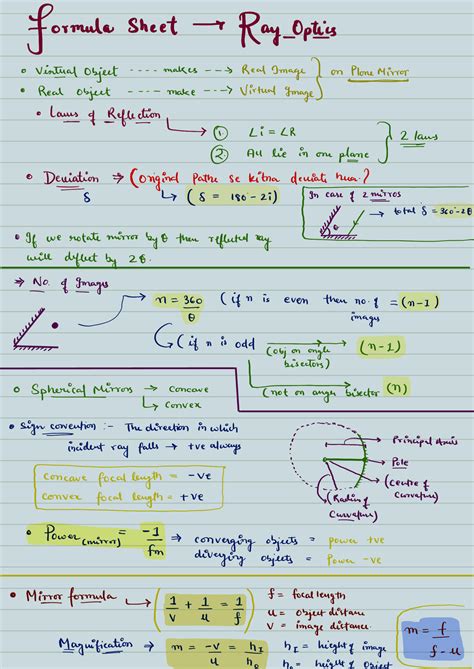 Formula Sheet → Ray Optics
• Virtual Object ---- makes --→ Real Image } on Plane Mirror
• Real object ---- make --→ Virtual Image
• Laws of Reflection
① ∠i = ∠R } 2 laws
② All lie in one plane
• Deviation ⇒ (Original Path se kitna deviate hua?)
δ ↳ (δ = 180° - 2i)
In case of 2 mirros
→ total δ = 360 - 2θ
θ
• If we rotate mirror by θ then reflected ray
will deflect by 2θ.
⇒ No. of Images
n = 360/θ (if n is even then no. of images = (n-1)
(if n is odd (obj on angle bisectors) → (n-1)
(not on anger bisector (n)
○ Spherical Mirrors → Concave
↳ Convex
• Sign convention :- The direction in which
incident ray falls → +ve always
concave focal length = -ve
Convex focal length = +ve
Principal Axis
Pole
(Centre of Curvature)
(Radius of Curvature)
• Power (mirror) = -1/fm ⇒ converging objects = power +ve
diverging objects = Power -ve
• Mirror formula ↳ (1/v + 1/u = 1/f)
f = focal length
u = object distance
v = image distance
Magnification → m = -v/u = hI/ho
hI = height of image
ho = height of Object
m = f/f-u